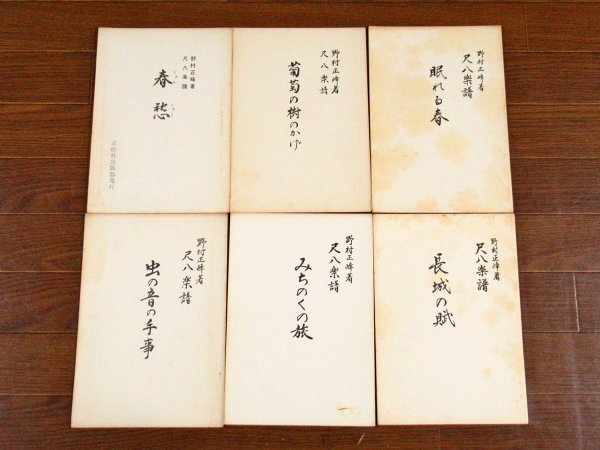 野村正峰著
尺八楽譜
春愁
しゅん
しゅう
正絃社出版部発行
野村正峰著
尺八楽譜
葡萄の樹のかげ
野村正峰著
尺八楽譜
眠れる春
野村正峰著
尺八楽譜
虫の音の手事
野村正峰著
尺八楽譜
みちのくの旅
野村正峰著
尺八楽譜
長城の賦